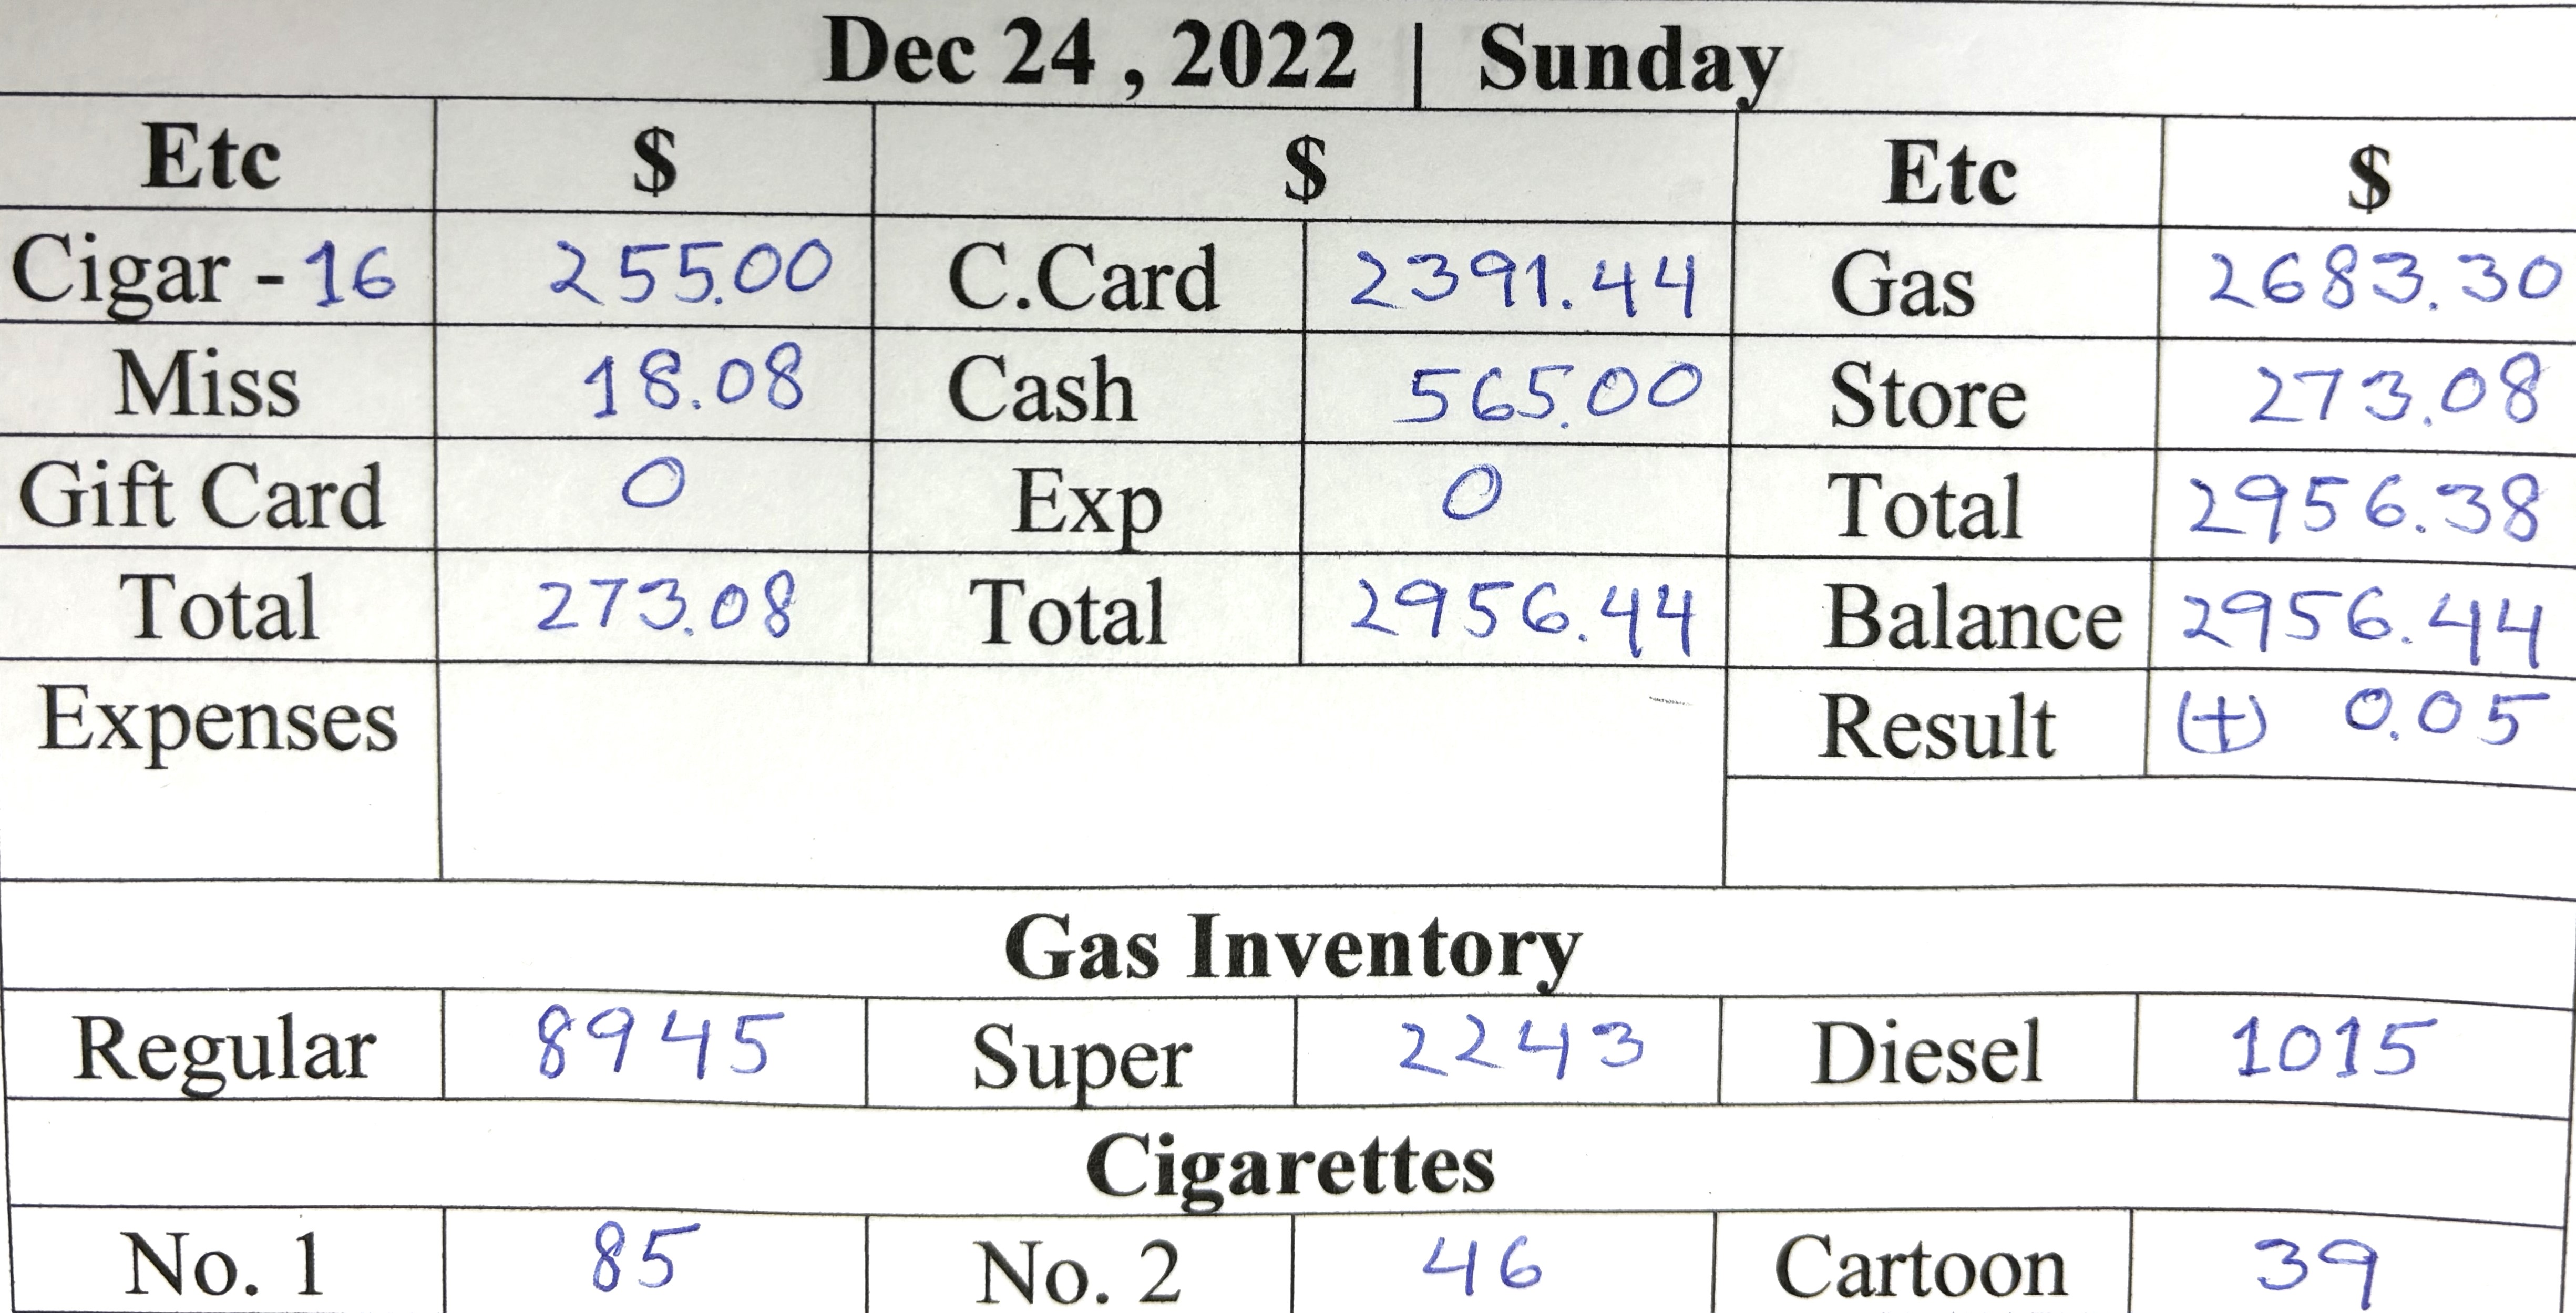 Dec 24 , 2022 | Sunday
Etc $ $ Etc $
Cigar - 16 255.00 C.Card 2391.44 Gas 2683.30
Miss 18.08 Cash 565.00 Store 273.08
Gift Card 0 Exp 0 Total 2956.38
Total 273.08 Total 2956.44 Balance 2956.44
Expenses Result (+) 0.05
Gas Inventory
Regular 8945 Super 2243 Diesel 1015
Cigarettes
No. 1 85 No. 2 46 Cartoon 39